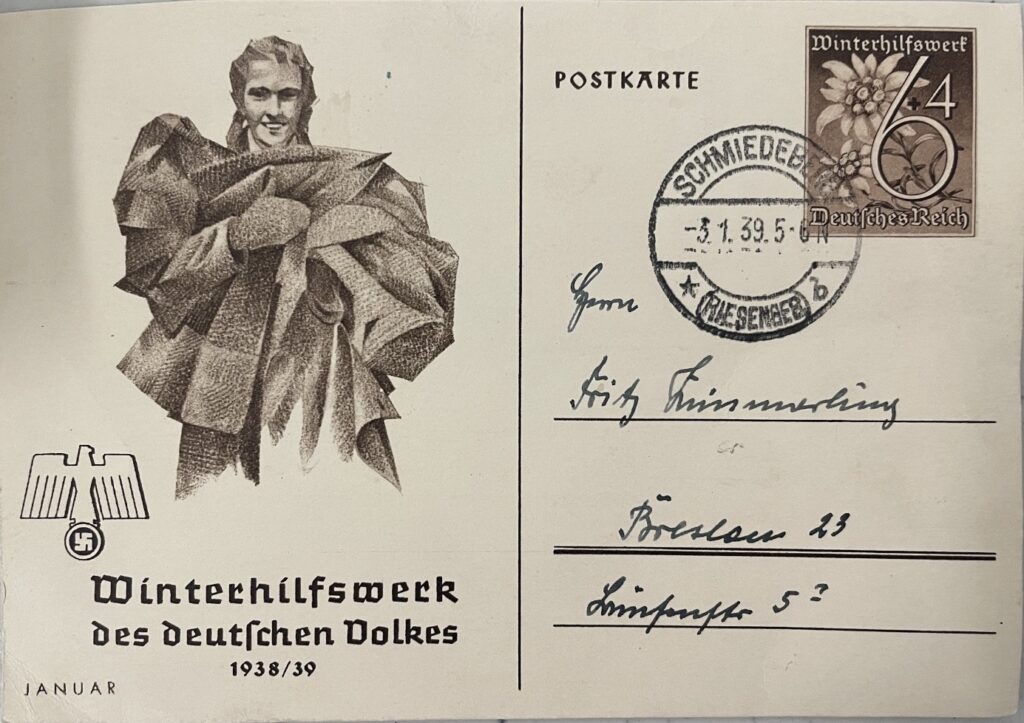 Winterhilfswerk
des deutschen Volkes
1938/39
JANUAR
POSTKARTE
Winterhilfswerk
6+4
Deutsches Reich
SCHMIEDEB
-3.1.39.5-6 N
★ (RIESENGEB) b
Herrn
Fritz
Breslau 23
5